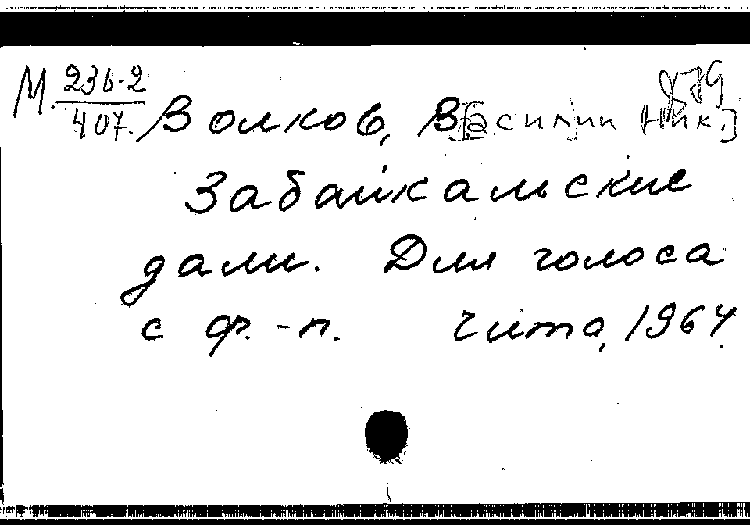 М 236-2
407.
879
Волков, В[асилий Ник.]
Забайкальские
дали. Для голоса
с ф.-п. Чита, 1964.